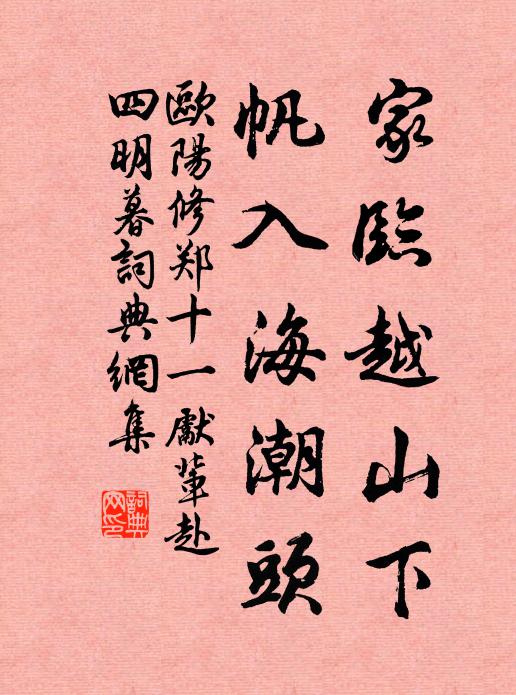 家臨越山下
帆入海潮頭
歐陽修郑十一獻輩赴
四明暮詞典網集
詞典網印